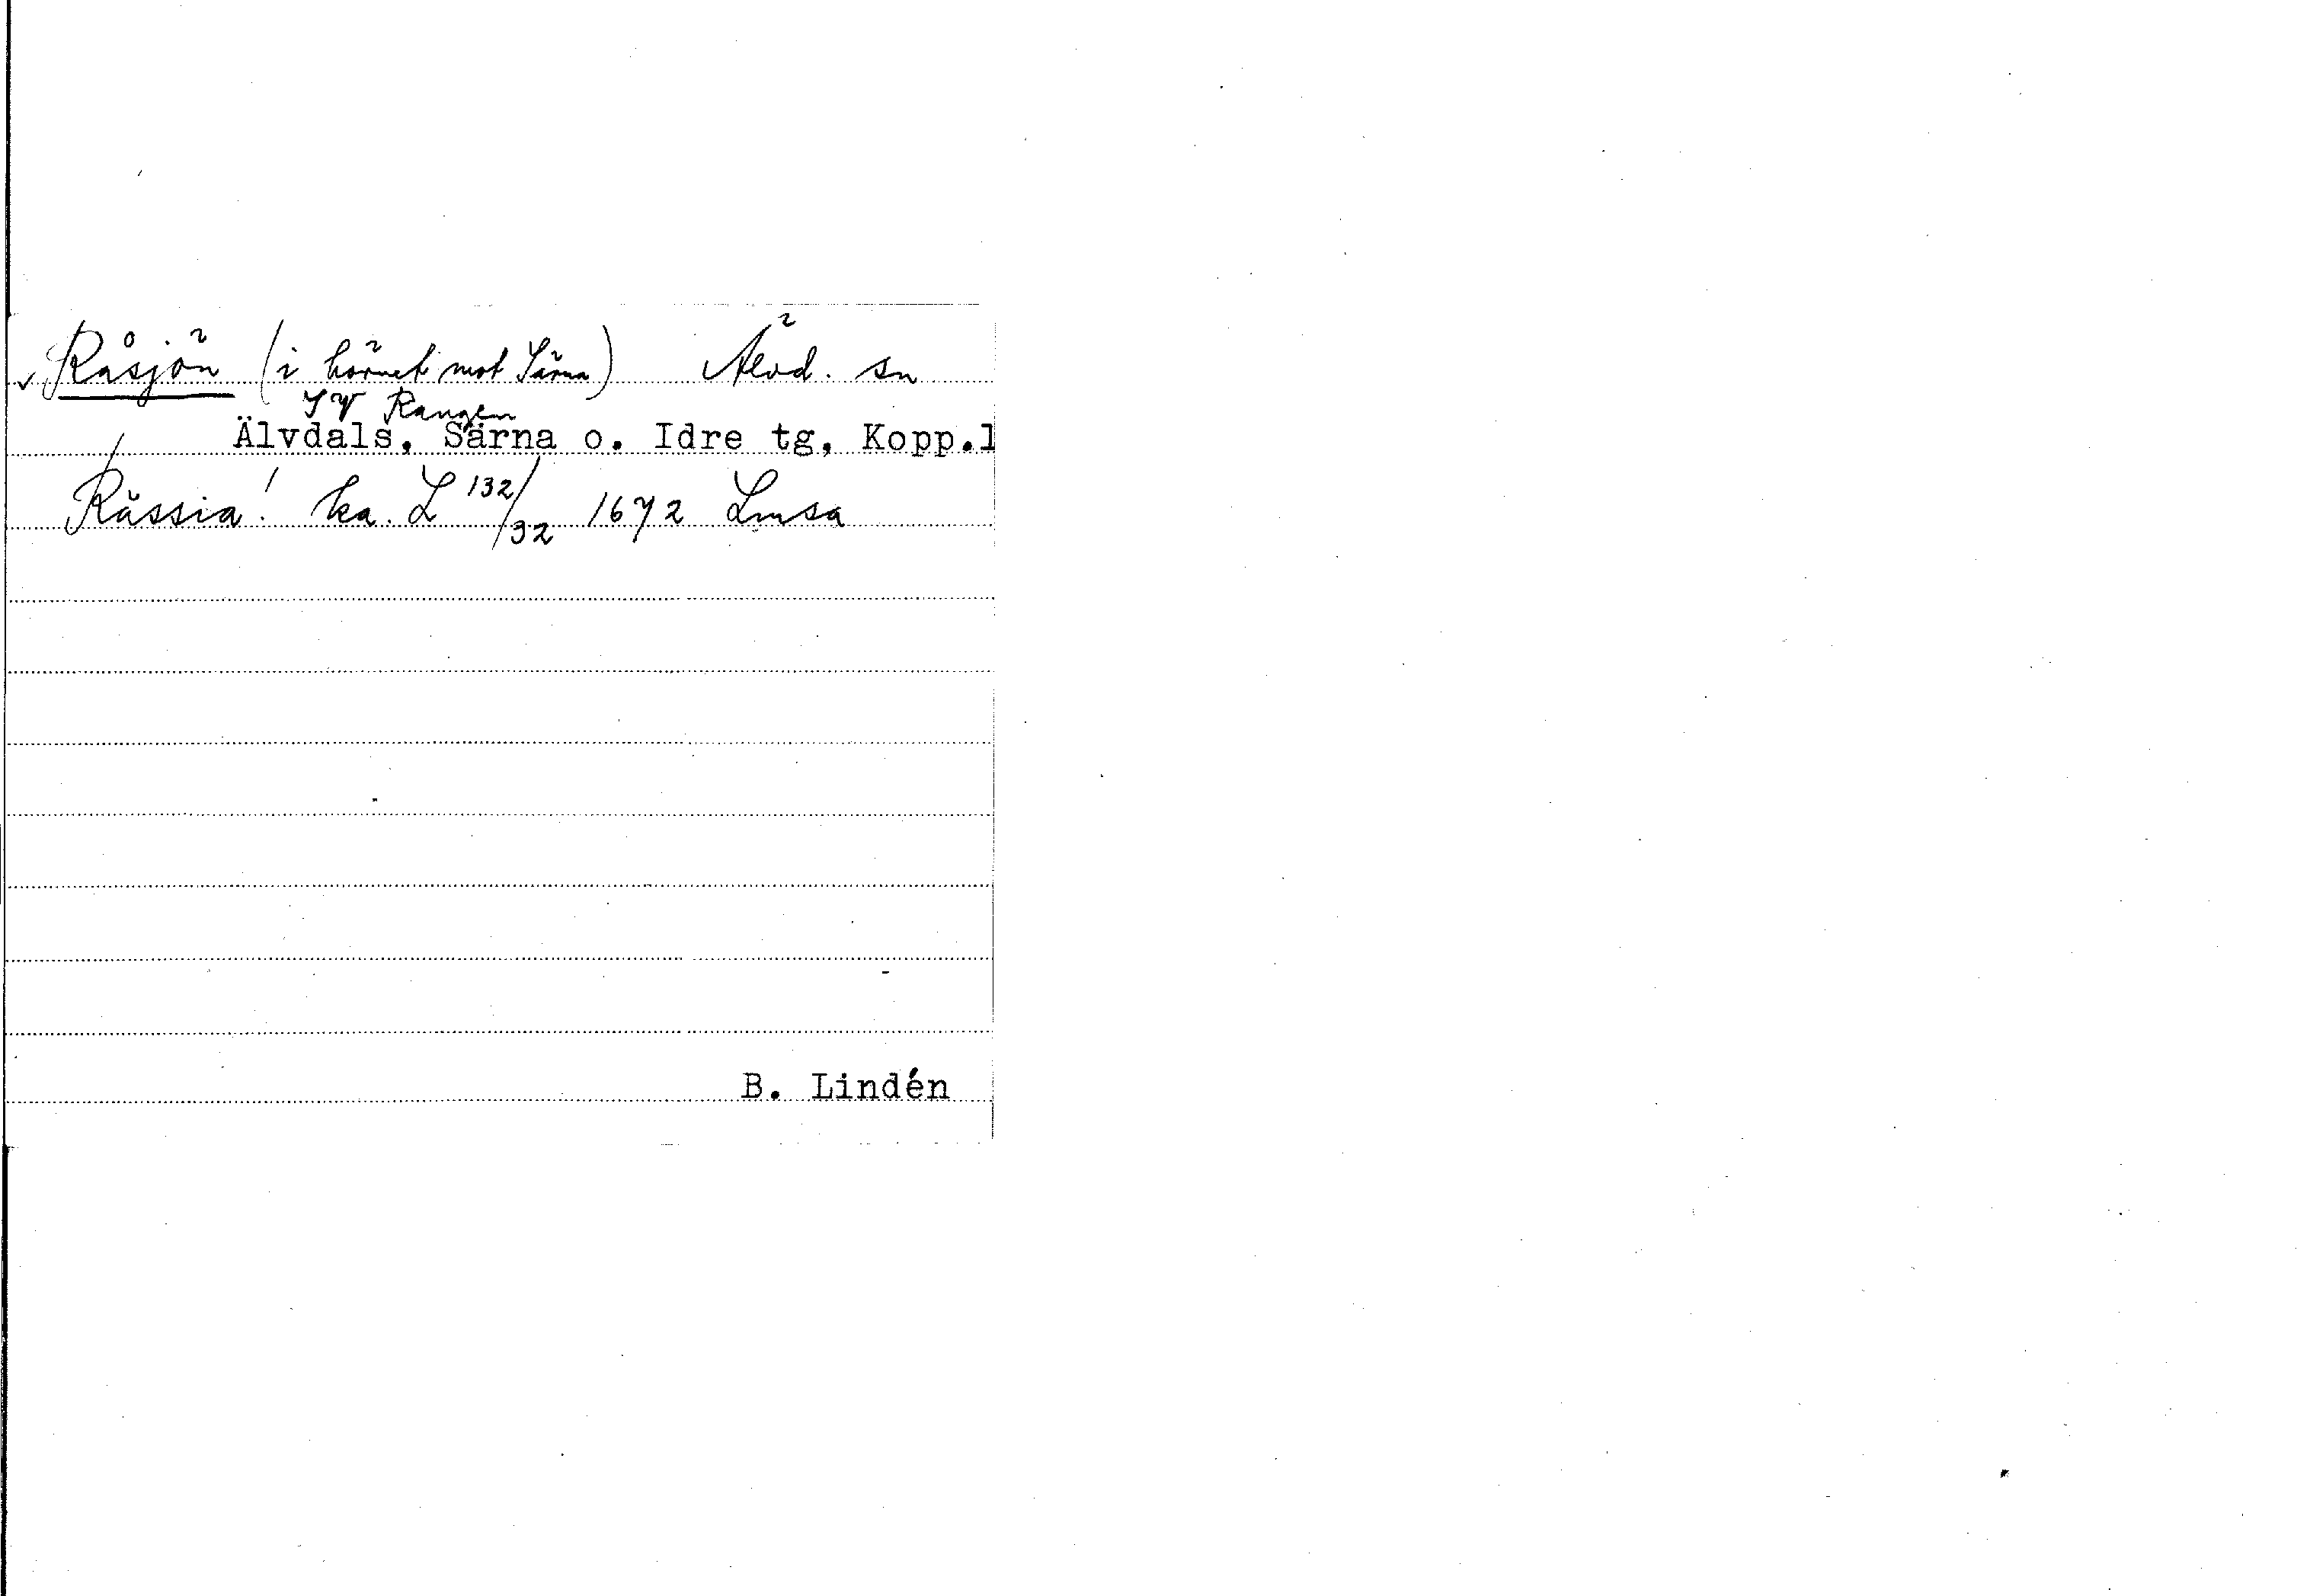 ✓ Råsjön (i hörnet mot Särna) Älvd. sn
SV Rangen
Älvdals, Särna o. Idre tg, Kopp.l
Råssia! ka. L 132/32 1672 Lmsa
B. Lindén